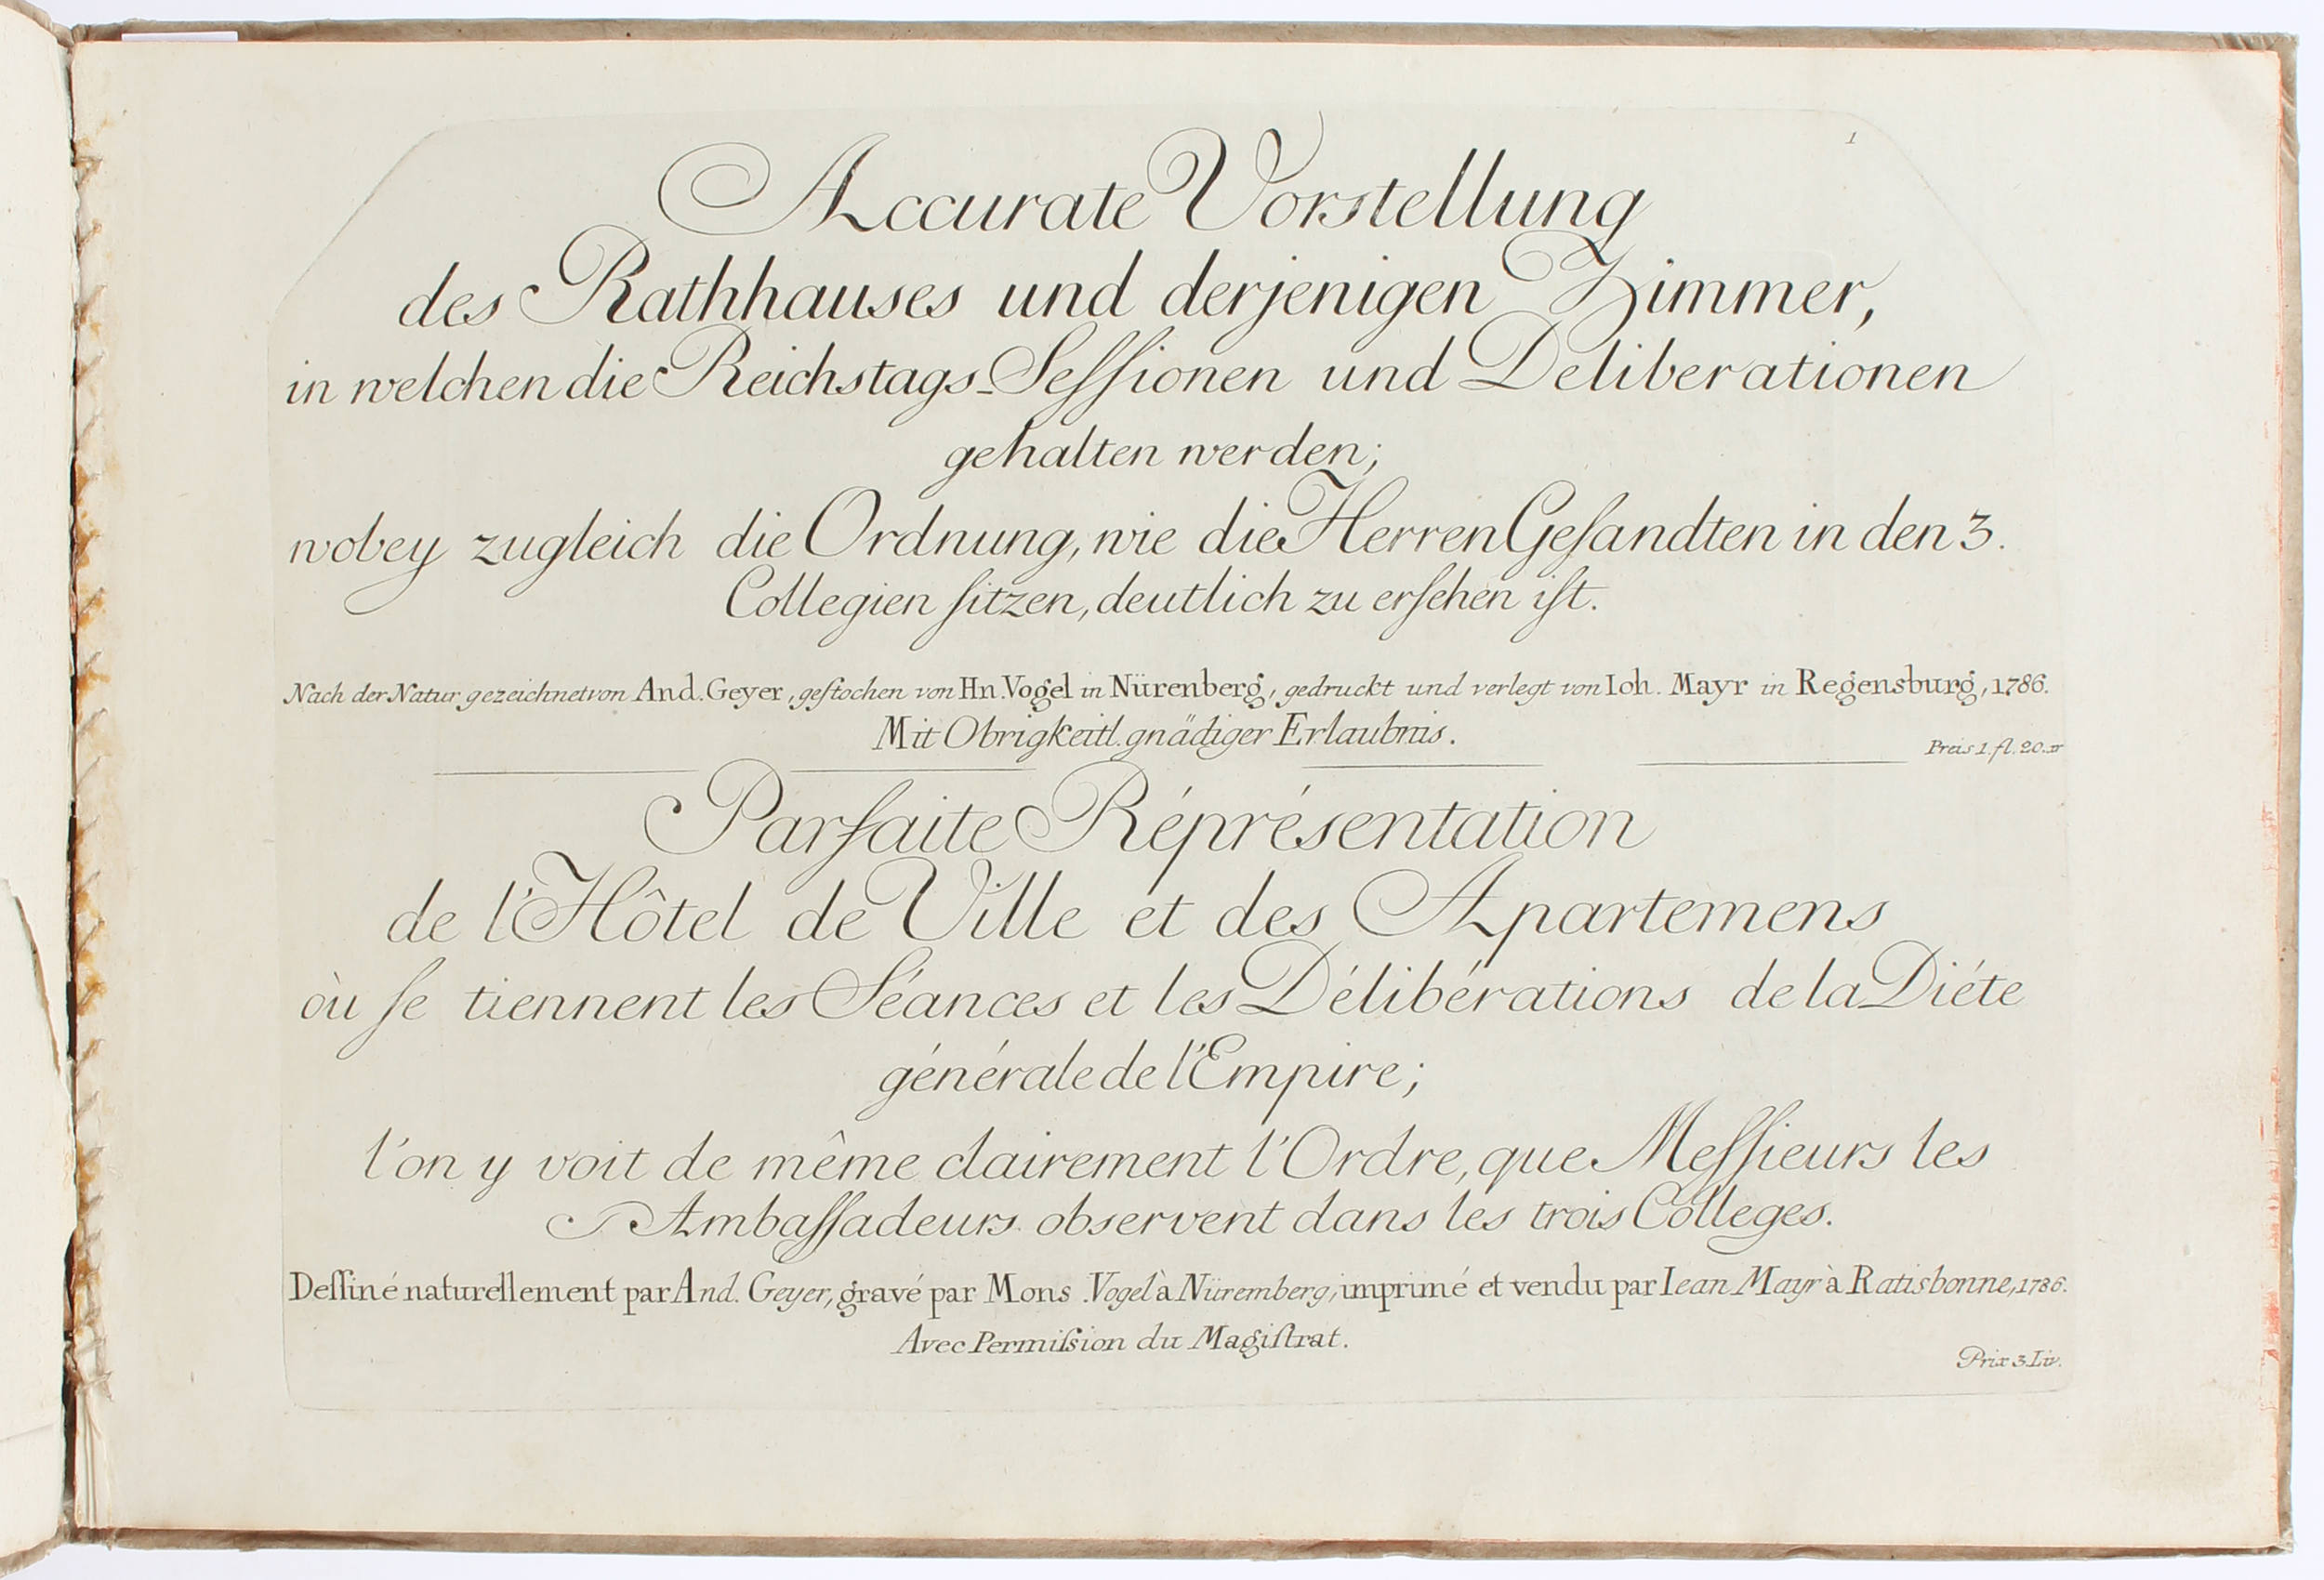 1
Accurate Vorstellung
des Rathhauses und derjenigen Zimmer,
in welchen die Reichstags-Seſſionen und Deliberationen
gehalten werden;
wobey zugleich die Ordnung, wie die Herren Geſandten in den 3.
Collegien ſitzen, deutlich zu erſehen iſt.
Nach der Natur gezeichnet von And. Geyer, geſtochen von Hn. Vogel in Nürenberg, gedruckt und verlegt von Ioh. Mayr in Regensburg, 1786.
Mit Obrigkeitl. gnädiger Erlaubnis.
Preis 1. fl. 20. xr
Parfaite Répréſentation
de l'Hôtel de Ville et des Apartemens
où ſe tiennent les Séances et les Délibérations de la Diéte
générale de l'Empire;
l'on y voit de même clairement l'Ordre, que Meſſieurs les
Ambaſſadeurs observent dans les trois Colleges.
Deſſiné naturellement par And. Geyer, gravé par Mons. Vogel à Nüremberg, imprimé et vendu par Iean Mayr à Ratisbonne, 1786.
Avec Permiſsion du Magiſtrat.
Prix 3. Liv.